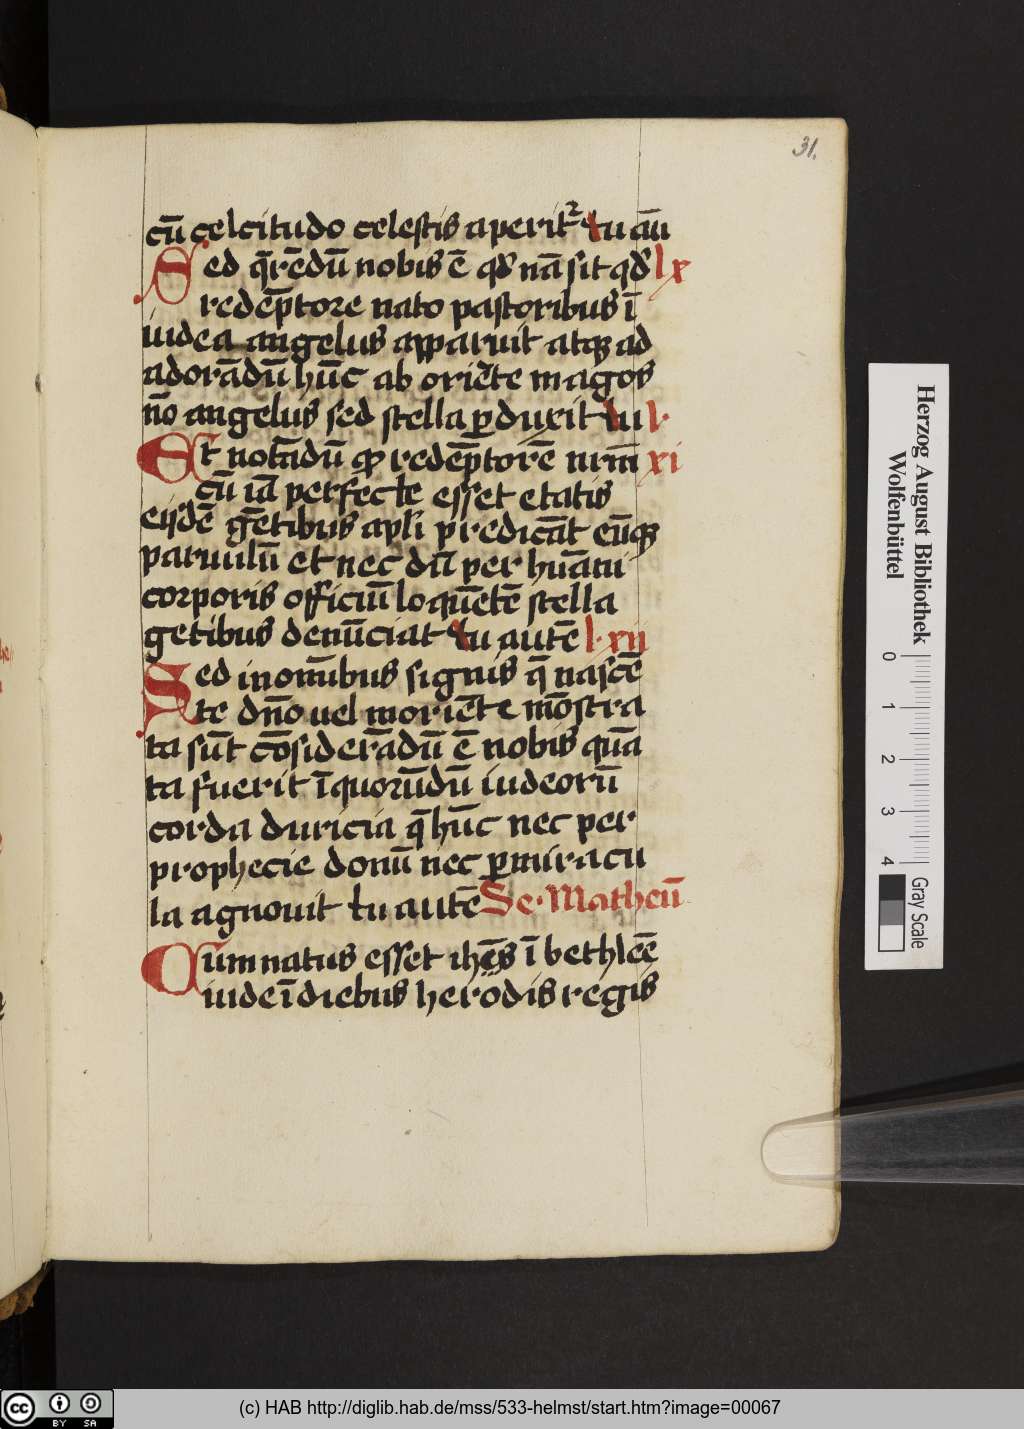 31.
cū celcitudo celestis aperit᷑ tu āu
Sed q̄rēdū nobis ē qd̓ nā sit qd̓ l x
redēp̄tore nato pastoribus ī
iudea angelus apparuit atqꝫ ad
adorādū hūc ab oriēte magos
nō angelus sed stella ꝑduxit tu l.
Et notādū ꝙ redēp̄torē nr̄m xi
cū iā perfecte esset etatis
eiſdē gētibus apl̓i p̄redicāt eūqꝫ
paruulū et nec dū per huāni
corporis officiū loquētē stella
gētibus denūciat tu autē l. xii
Sed in om̄ibus signis q̄ nascē
te dn̄o uel moriēte mōstra
ta sūt cōsiderādū ē nobis quā
ta fuerit ī quorūdū iudeorū
corda duricia q̄ hūc nec per
prophecie donū nec ꝑ miracu
la agnouit tu autē Se. Matheū
Cum natus esset ihēs ī bethleē
iude ī diebus herodis regis
Herzog August Bibliothek
Wolfenbüttel
0 1 2 3 4
Gray Scale
cc BY SA
(c) HAB http://diglib.hab.de/mss/533-helmst/start.htm?image=00067